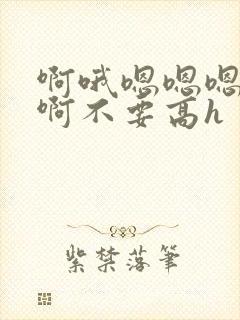 啊哦嗯嗯嗯
啊不要高h
紫禁落笔